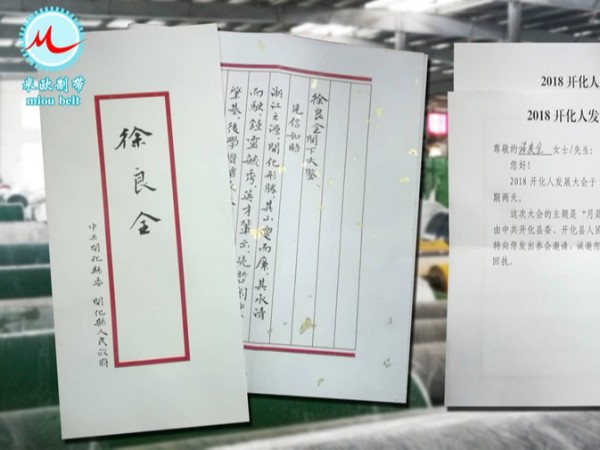 米欧制带
miou belt
徐良全
中共開化縣委 開化縣人民政府
徐良全閣下大鑒
見信如晤
浙江之源,開化形勝,其山而廉,其水清
而駛,鍾靈毓秀,英才輩出,先哲創
基,後學
2018 开化人
2018 开化人发
尊敬的 徐良全 女士/先生:
您好!
2018 开化人发展大会于
期两天。
这次大会的主题是“月是
由中共开化县委、开化县人民
特向您发出参会邀请,诚邀您
回执。